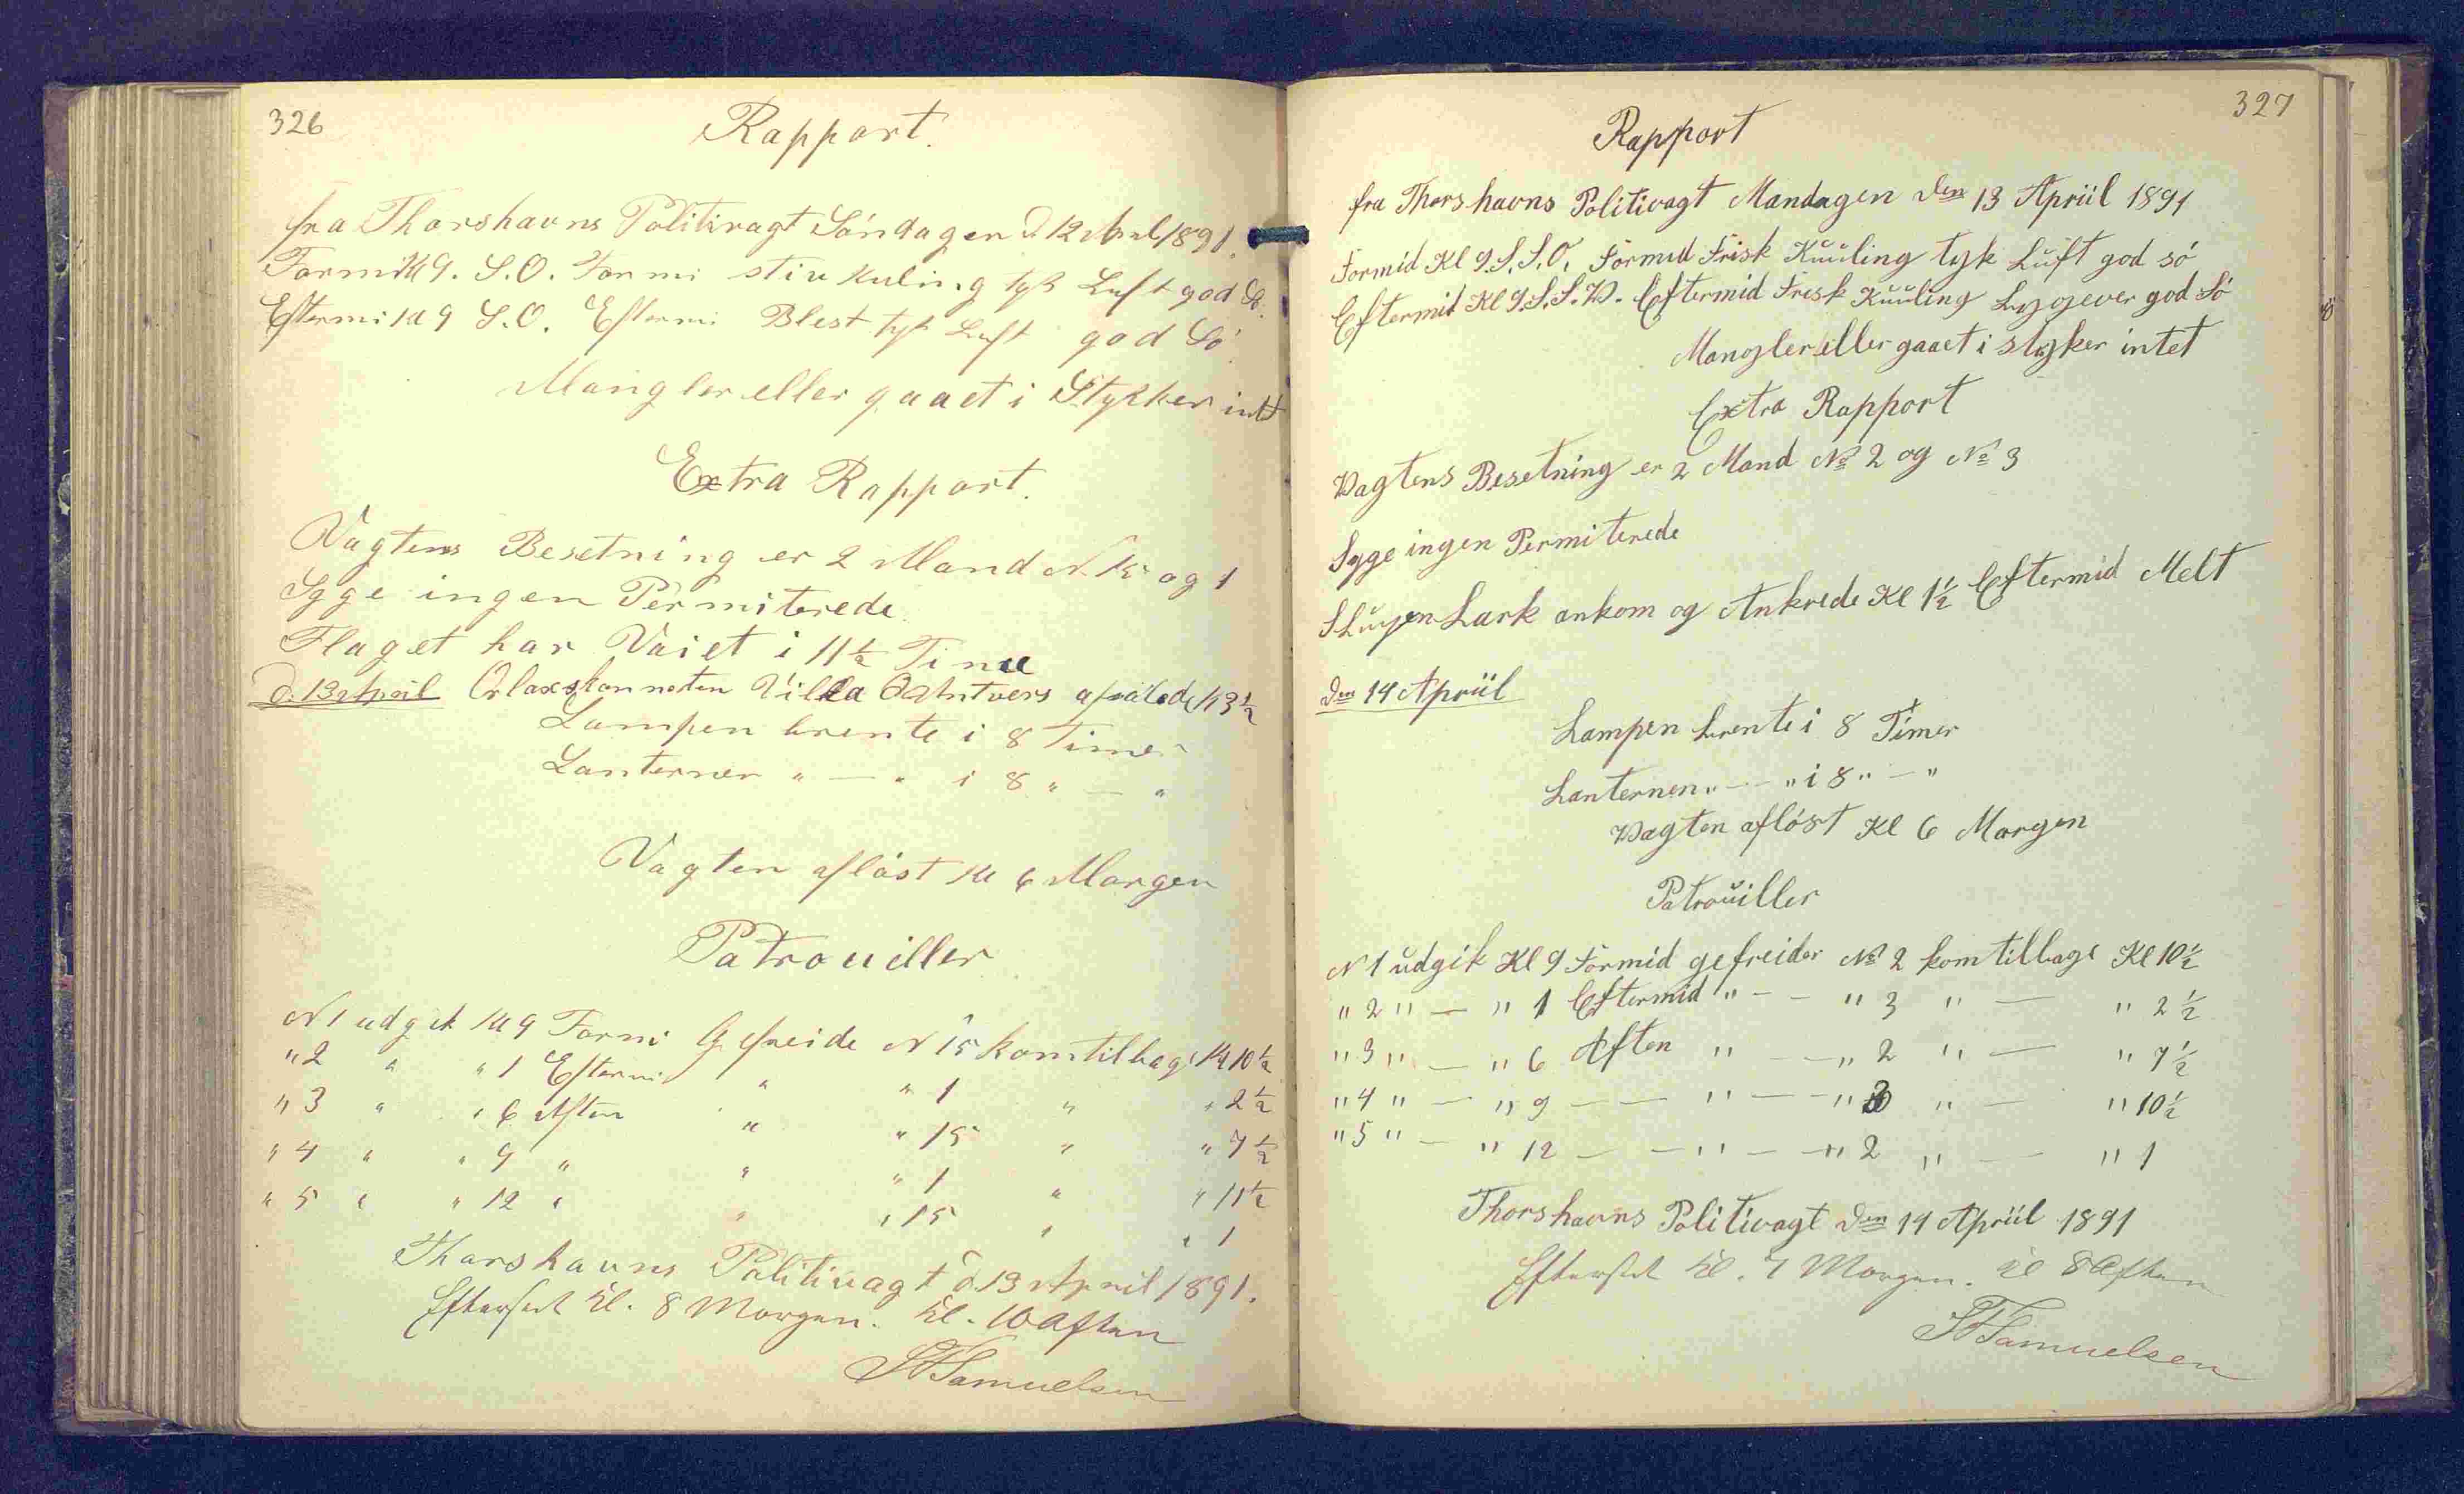 326
Rapport.
fra Thorshavns Politivagt Söndagen d 12 April 1891.
Formi Kl 9. S.O. Formi stiv Kuling tyk Luft god Sö.
Eftermi Kl 9 S.O. Eftermi Blest tyk Luft god Sö.
Mangler eller gaaet i Stykker intet
Extra Rapport.
Vagtens Besetning er 2 Mand N. 15 og 1
Syge ingen Permiterede.
Flaget har Vaiet i 11½ Time
d. 13 April
Lampen brente i 8 Timer
Lanternen " — " i 8 " — "
Vagten aflöst Kl 6 Morgen
Patrouiller
N 1 udgik Kl 9 Formi Gefreide N 15 kom tilbage Kl 10½
" 2 " " 1 Eftermi " " 1 " " 2½
" 3 " " 6 Aften " " 15 " " 7½
" 4 " " 9 " " " 1 " " 11½
" 5 " " 12 " " " 15 " " 1
Thorshavns Politivagt d. 13 April 1891.
Efterset Kl. 8 Morgen. Kl. 10 Aften
Samuelsen
327
Rapport
fra Thorshavns Politivagt Mandagen den 13 Apriil 1891
Formid Kl 9. S.S.O. Formid Frisk Kuuling tyk Luft god sö
Eftermit Kl 9. S.S.W. Eftermid Frisk Kuuling god Sö
Mangler eller gaaet i styker intet
Extra Rapport
Vagtens Besetning er 2 Mand No 2 og No 3
Syge ingen Permiterede
Sluypen Lark ankom og Ankrede Kl 1½ Eftermid Melt
den 14 Apriil
Lampen brente i 8 Timer
Lanternen " — " i 8 " — "
Vagten aflöst Kl 6 Morgen
Patrouiller
N 1 udgik Kl 9 Formid gefreider No 2 kom tilbage Kl 10½
" 2 " — " 1 Eftermid " — — " 3 " — " 2½
" 3 " — " 6 Aften " — — " 2 " — " 7½
" 4 " — " 9 — — " — — " 3 " — " 10½
" 5 " — " 12 — — " — — " 2 " — " 1
Thorshavns Politivagt den 14 Apriil 1891
Efterset Kl. 7 Morgen. Kl 8 Aften
Samuelsen